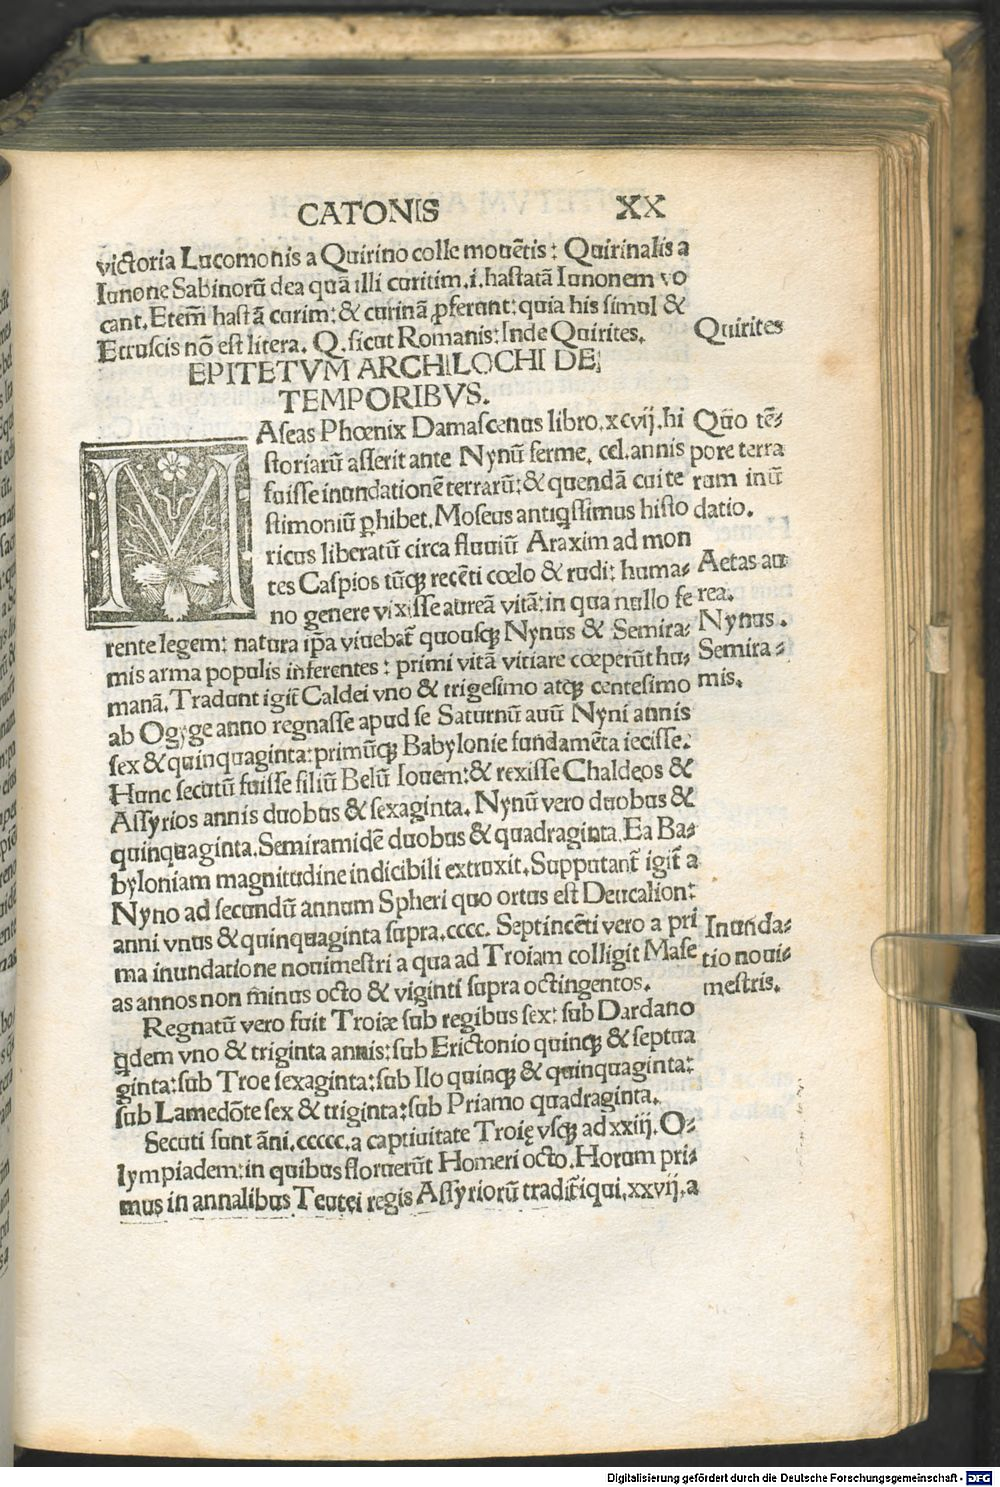 CATONIS XX
victoria Lucomonis a Quirino colle mouẽtis: Quirinalis a
Iunone Sabinorũ dea quã illi curitim.i.hastatã Iunonem vo
cant.Etem̃ hastã curim:& curinã ꝓferunt:quia his simul &
Etruscis nõ est litera. Q.sicut Romanis:Inde Quirites.
Quirites
EPITETVM ARCHILOCHI DE
TEMPORIBVS.
MAseas Phœnix Damascenus libro.xcvij.hi
storiarũ asserit ante Nynũ ferme. cel.annis
fuisse inundationẽ terrarũ:& quendã cui te
stimoniũ ꝑhibet.Moseus antiqssimus histo
ricus liberatũ circa fluuiũ Araxim ad mon
tes Caspios tũcꝗ recẽti cœlo & rudi: huma⸗
no genere vixisse aureã vitã:in qua nullo fe
Quõ tẽ⸗
pore terra
rum inũ
datio.
Aetas au
rea.
rente legem: natura ip̃a viuebat̃ quousꝗ Nynus & Semira⸗
mis arma populis inferentes: primi vitã vitiare cœperũt hu⸗
manã.Tradunt igit̃ Caldei vno & trigesimo atꝗ centesimo
Nynus.
Semira⸗
mis.
ab Ogyge anno regnasse apud se Saturnũ auũ Nyni annis
sex & quinquaginta:primũꝗ Babylonie fundamẽta iecisse.
Hunc secutũ fuisse filiũ Belũ Iouem:& rexisse Chaldeos &
Assyrios annis duobus & sexaginta.Nynũ vero duobus &
quinquaginta.Semiramidẽ duobus & quadraginta.Ea Ba⸗
byloniam magnitudine indicibili extruxit.Supputant̃ igit̃ a
Nyno ad secundũ annum Spheri quo ortus est Deucalion:
anni vnus & quinquaginta supra.cccc. Septincẽti vero a pri
ma inundatione nouimestri a qua ad Troiam colligit Mase
as annos non m̃inus octo & viginti supra octingentos.
Inunda⸗
tio noui⸗
mestris.
Regnatũ vero fuit Troiæ sub regibus sex: sub Dardano
qdem vno & triginta annis:sub Erictonio quinꝗ & septua
ginta:sub Troe sexaginta:sub Ilo quinꝗ & quinquaginta:
sub Lamedõte sex & triginta:sub Priamo quadraginta.
Secuti sunt ãni.ccccc.a captiuitate Troię vsꝗ ad xxiij.O⸗
lympiadem:in quibus floruerũt Homeri octo.Horum pri⸗
mus in annalibus Teutei regis Assyriorũ tradit̃:qui.xxvij.a
Digitalisierung gefördert durch die Deutsche Forschungsgemeinschaft - DFG